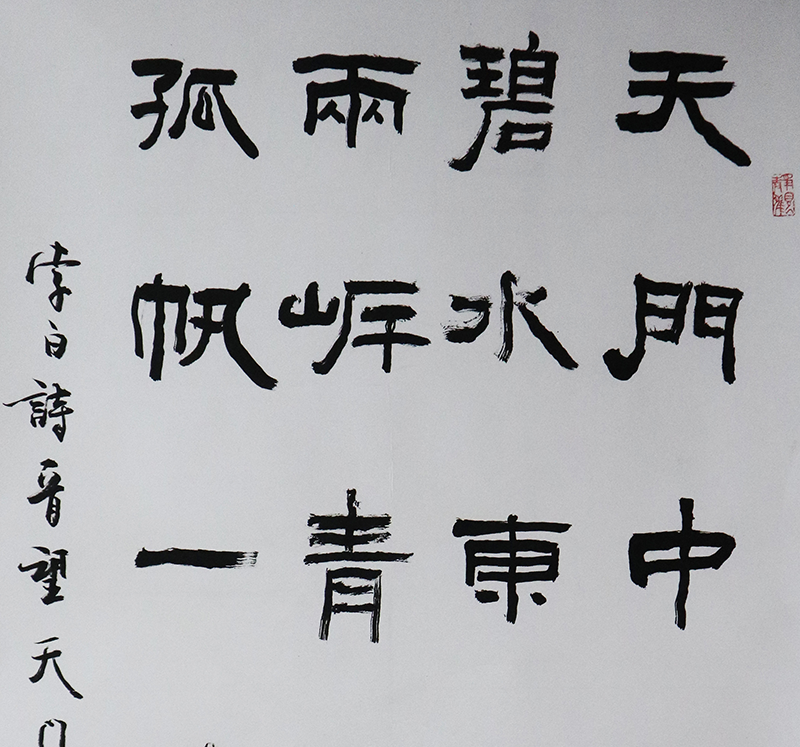 天門中
碧水東
兩岸青
孤帆一
李白詩
望天門